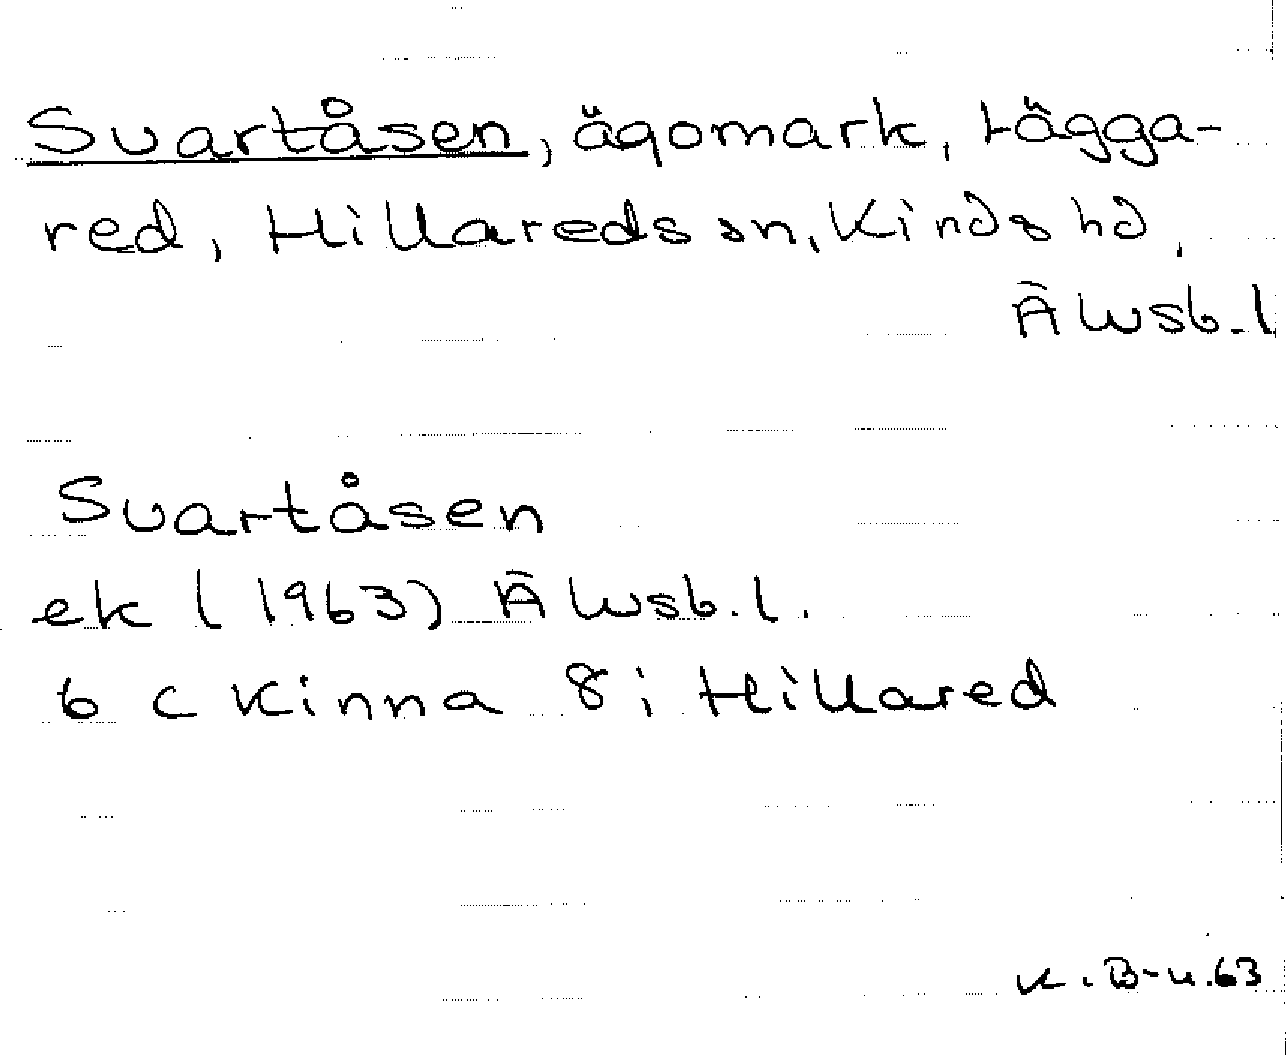 Svartåsen, ägomark, Tägga-
red, Hillareds sn, Kinds hd.
Älvsb.l
Svartåsen
ek (1963) Älvsb.l.
6 c Kinna 8; Hillared
K.B-u.63